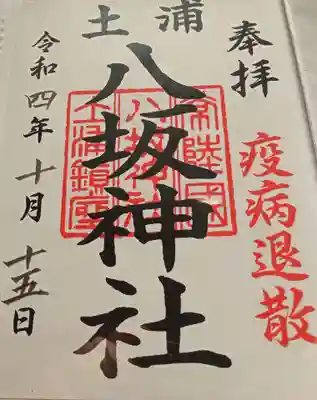 奉拝
疫病退散
土浦
八坂神社
常陸国
八坂神社
土浦鎮座
令和四年十月十五日